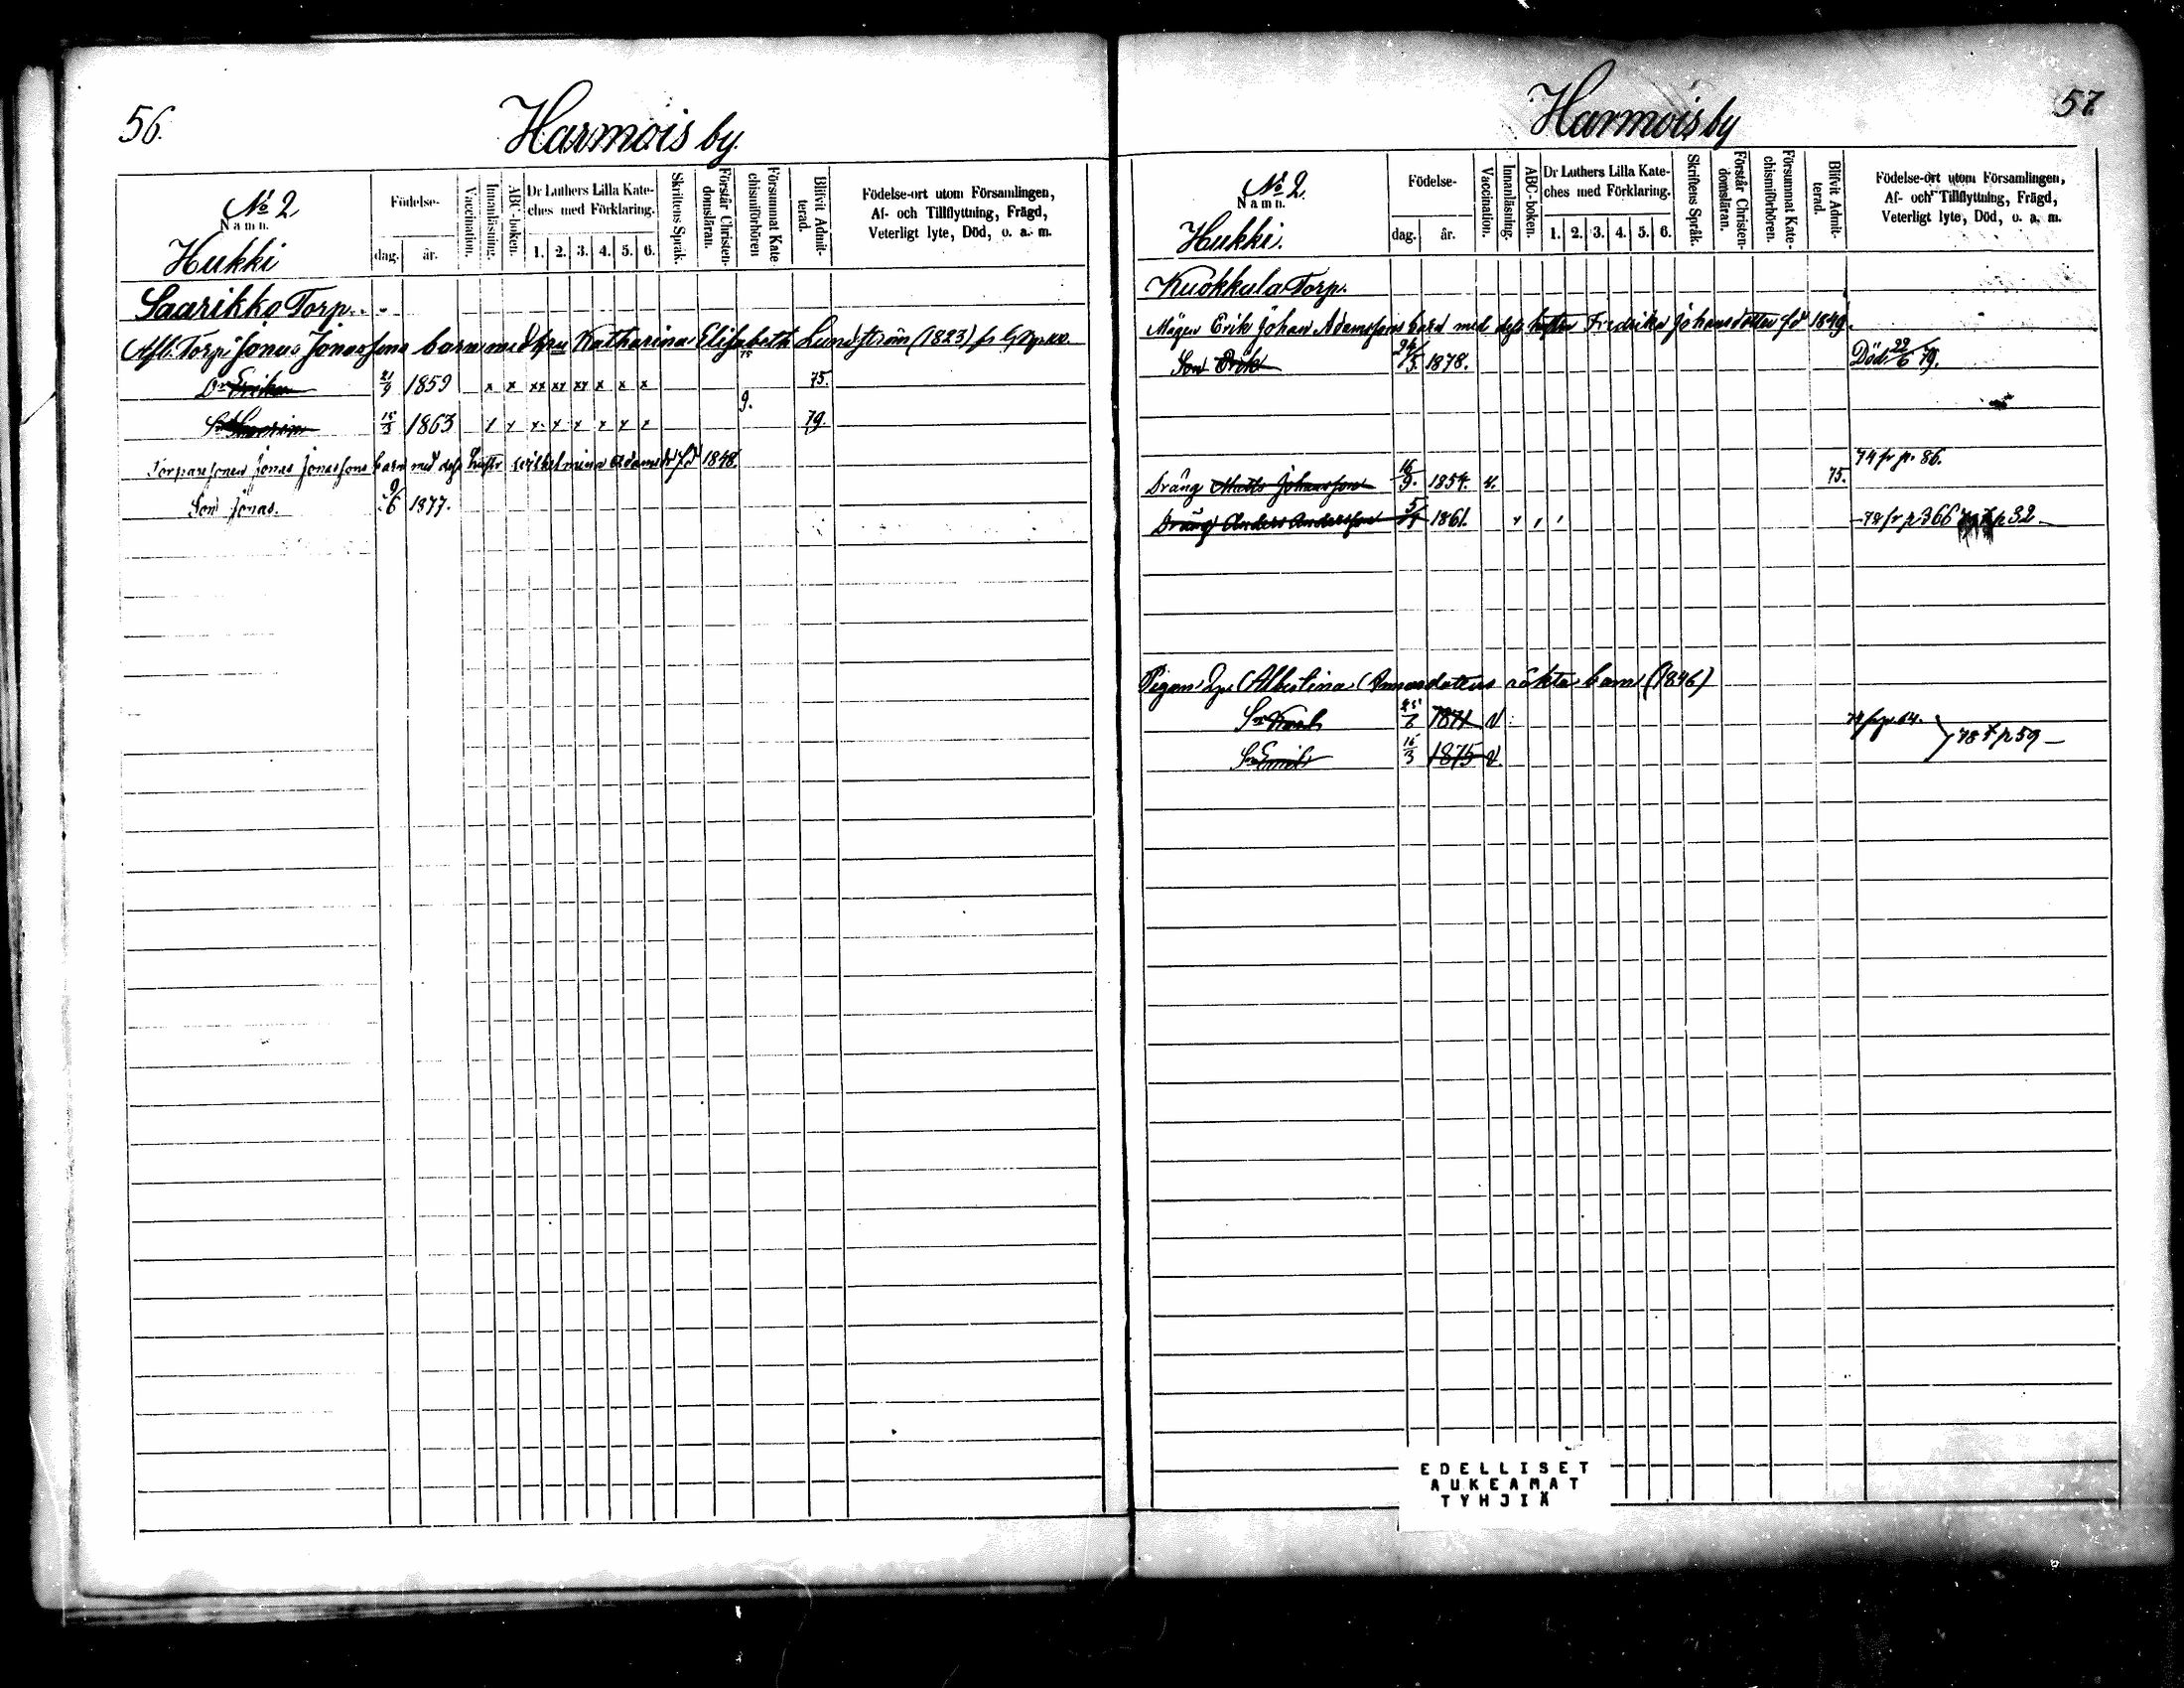 56.
Harmois by.
No 2
Namn.
Hukki
Födelse-
dag.
år.
Vaccination.
Innanläsning.
ABC-boken.
Dr Luthers Lilla Kate-
ches med Förklaring.
1. 2. 3. 4. 5. 6.
Skriftens Språk.
Förstår Christen-
domsläran.
Försummat Kate
chismiförhören
Blifvit Admit-
terad.
Födelse-ort utom Församlingen,
Af- och Tillflyttning, Frägd,
Veterligt lyte, Död, o. a. m.
Saarikko Torp.
Afl. Torp. Jonas Jonassons barn med hu Katharina Elisabeth Lundström (1823)
Dr Erika 21/3 1859 x x xx xx xx x x x 75.
9.
15/3 1863 x x x x x x x x 79
Torparesonen Jonas Jonassons barn med dess hustr Wilhelmina Adamsdr fd 1848.
Son Jonas. 9/6 1877.
57.
Harmois by
No 2.
Namn.
Hukki.
Födelse-
dag.
år.
Vaccination.
Innanläsning.
ABC-boken.
Dr Luthers Lilla Kate-
ches med Förklaring.
1. 2. 3. 4. 5. 6.
Skriftens Språk.
Förstår Christen-
domsläran.
Försummat Kate-
chismiförhören.
Blifvit Admit-
terad.
Födelse-ort utom Församlingen,
Af- och Tillflyttning, Frägd,
Veterligt lyte, Död, o. a. m.
Kuokkala Torp.
Mågen Erik Johan Adamssons barn med dess hustru Fredrika Johansdotter fd 1849.
Son Erik 24/5. 1878. Död 22/6 79.
Dräng Matts Johansson 16/9. 1854. v. 75. 74 fr p. 86.
Dräng Anders Andersson 5/ 1861. 78 fr p 366 p 32
Pigan Albertina Annasdotters oäkta barn (1846)
Sn Karl 25/6 1871 v. 74 fr p. 64.
Sn Emil 16/3 1875 v. 78 t p 59
EDELLISET
AUKEAMAT
TYHJIÄ